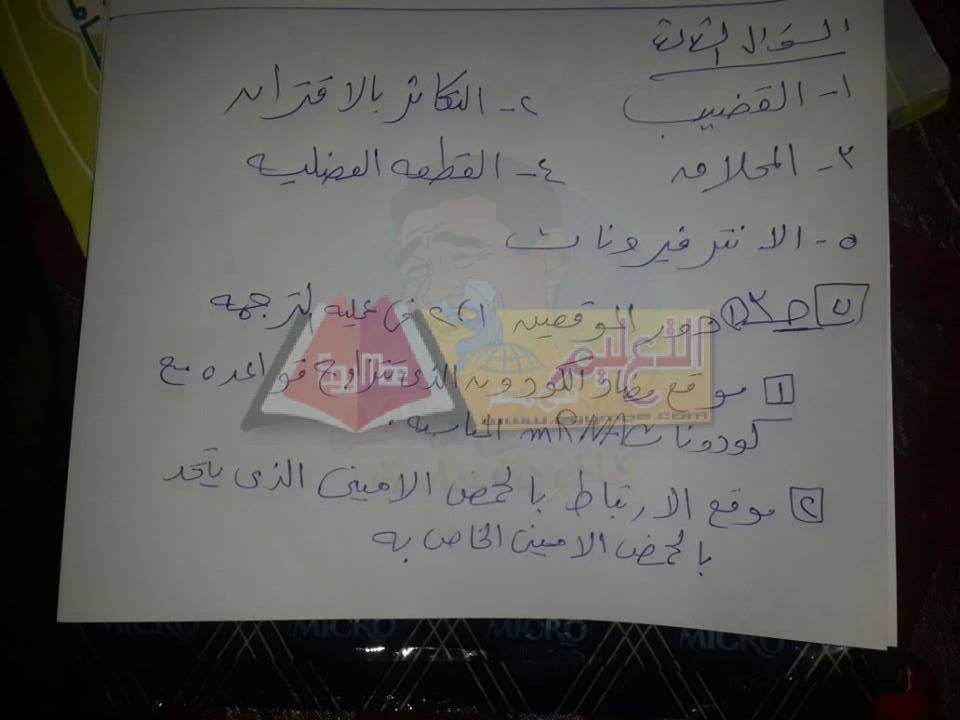 السؤال الثالث
١- القضيب ٢- التكاثر بالاقتران
٣- المحلاق ٤- القطعه العضليه
٥- الانترفيرونات
دور الموقعين ١، ٢ فى عملية الترجمه
١ موقع مضاد الكودون الذى تتزاوج قواعده مع
كودونات mRNA المناسبه.
٢ موقع الارتباط بالحمض الامينى الذى يتحد
بالحمض الامينى الخاص به
التعليم
MICRO MICRO MICRO MICRO